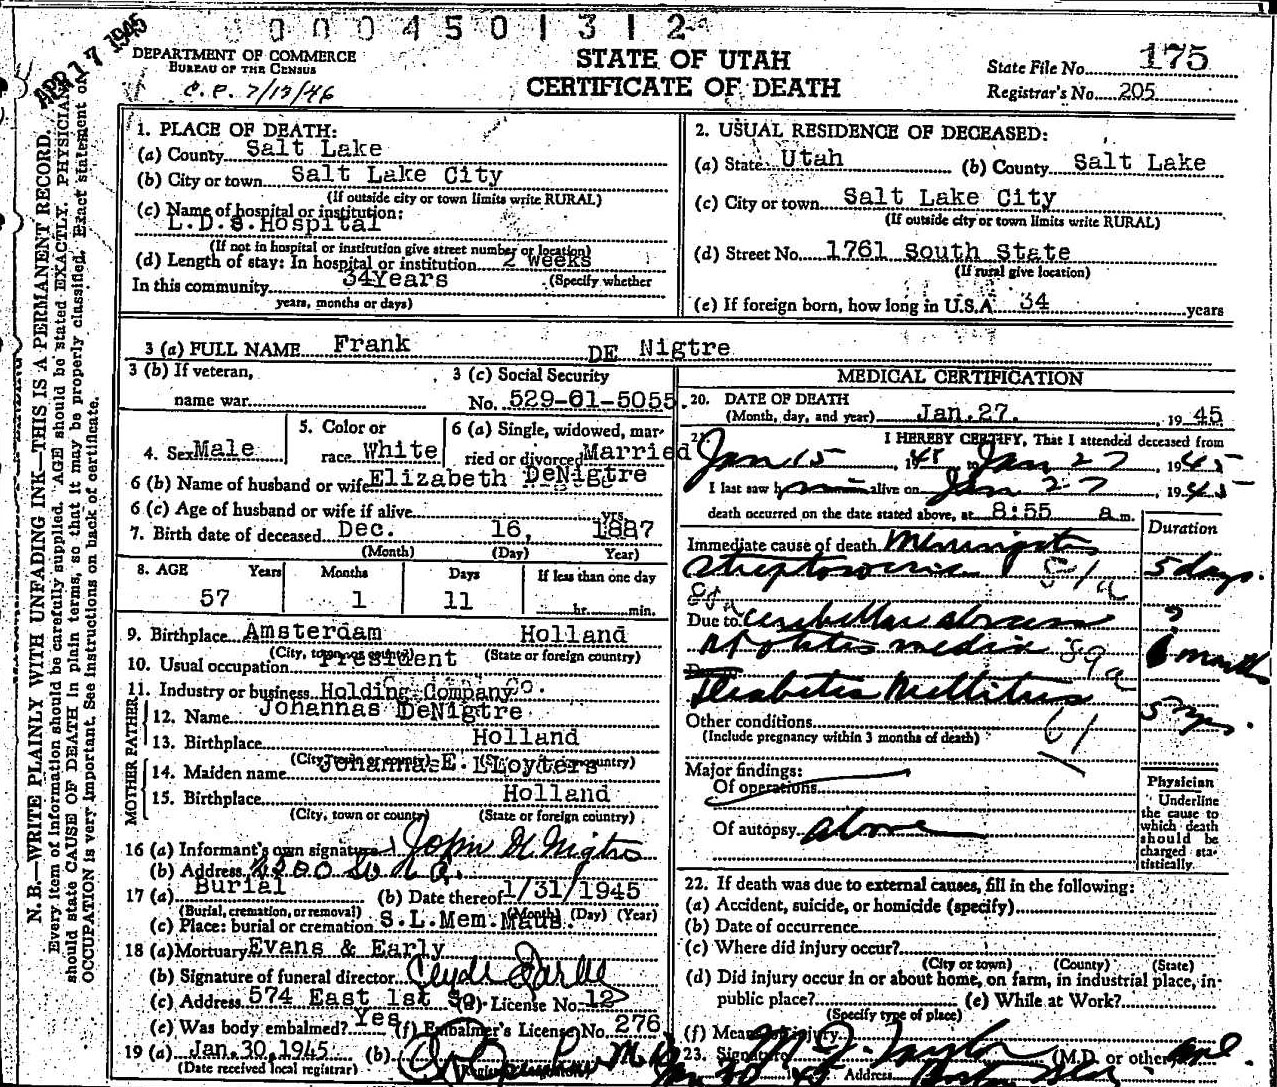 0 0 0 4 5 0 1 3 1 2
APR 17 1945
DEPARTMENT OF COMMERCE
BUREAU OF THE CENSUS
C. P. 7/13/46
STATE OF UTAH
CERTIFICATE OF DEATH
State File No. 175
Registrar's No. 205
N. B.—WRITE PLAINLY WITH UNFADING INK—THIS IS A PERMANENT RECORD.
Every item of information should be carefully supplied. AGE should be stated EXACTLY. PHYSICIA
should state CAUSE OF DEATH in plain terms, so that it may be properly classified. Exact statement of
OCCUPATION is very important. See instructions on back of certificate.
1. PLACE OF DEATH:
(a) County Salt Lake
(b) City or town Salt Lake City
(If outside city or town limits write RURAL)
(c) Name of hospital or institution:
L.D.S.Hospital
(If not in hospital or institution give street number or location)
(d) Length of stay: In hospital or institution 2 Weeks
In this community 34Years (Specify whether
years, months or days)
2. USUAL RESIDENCE OF DECEASED:
(a) State Utah (b) County Salt Lake
(c) City or town Salt Lake City
(If outside city or town limits write RURAL)
(d) Street No. 1761 South State
(If rural give location)
(e) If foreign born, how long in U.S.A. 34 years
3 (a) FULL NAME Frank DE Nigtre
3 (b) If veteran,
name war
3 (c) Social Security
No. 529-01-5055
4. Sex Male
5. Color or
race White
6 (a) Single, widowed, mar-
ried or divorced Married
6 (b) Name of husband or wife Elizabeth DeNigtre
6 (c) Age of husband or wife if alive yrs.
7. Birth date of deceased Dec. 16, 1887
(Month) (Day) Year)
8. AGE Years Months Days If less than one day
57 1 11 hr. min.
9. Birthplace Amsterdam Holland
(City, town or county) (State or foreign country)
10. Usual occupation President
11. Industry or business Holding Company Co.
FATHER
12. Name Johannas DeNigtre
13. Birthplace Holland
(City, town or county) (State or foreign country)
MOTHER
14. Maiden name Johannas E. LLoyters
15. Birthplace Holland
(City, town or county) (State or foreign country)
16 (a) Informant's own signature John H Nigtre
(b) Address
17 (a) Burial (b) Date thereof 1/31/1945
(Burial, cremation, or removal) (Month) (Day) (Year)
(c) Place: burial or cremation S.L.Mem.Maus.
18 (a) Mortuary Evans & Early
(b) Signature of funeral director Clyde Early
(c) Address 574 East 1st So. (d) License No. 12
(e) Was body embalmed? Yes (f) Embalmer's License No. 276
19 (a) Jan.30,1945 (b)
(Date received local registrar)
MEDICAL CERTIFICATION
20. DATE OF DEATH
(Month, day, and year) Jan.27. , 19 45
21. I HEREBY CERTIFY, That I attended deceased from
Jan 15 , 1945 to Jan 27 , 1945
I last saw him alive on Jan 27 , 1945
death occurred on the date stated above, at 8:55 a m.
Duration
Immediate cause of death Meningitis
51a 5 days.
Due to Cerebellar abscess ?
otitis media 89a month
Diabetes Mellitus 5 yrs.
Other conditions 61
(Include pregnancy within 3 months of death)
Major findings:
Of operations
Of autopsy above
Physician
Underline
the cause to
which death
should be
charged sta-
tistically.
22. If death was due to external causes, fill in the following:
(a) Accident, suicide, or homicide (specify)
(b) Date of occurrence
(c) Where did injury occur?
(City or town) (County) (State)
(d) Did injury occur in or about home, on farm, in industrial place, in-
public place? (e) While at Work?
(Specify type of place)
(f) Means of injury
23. Signature (M.D. or other
Address